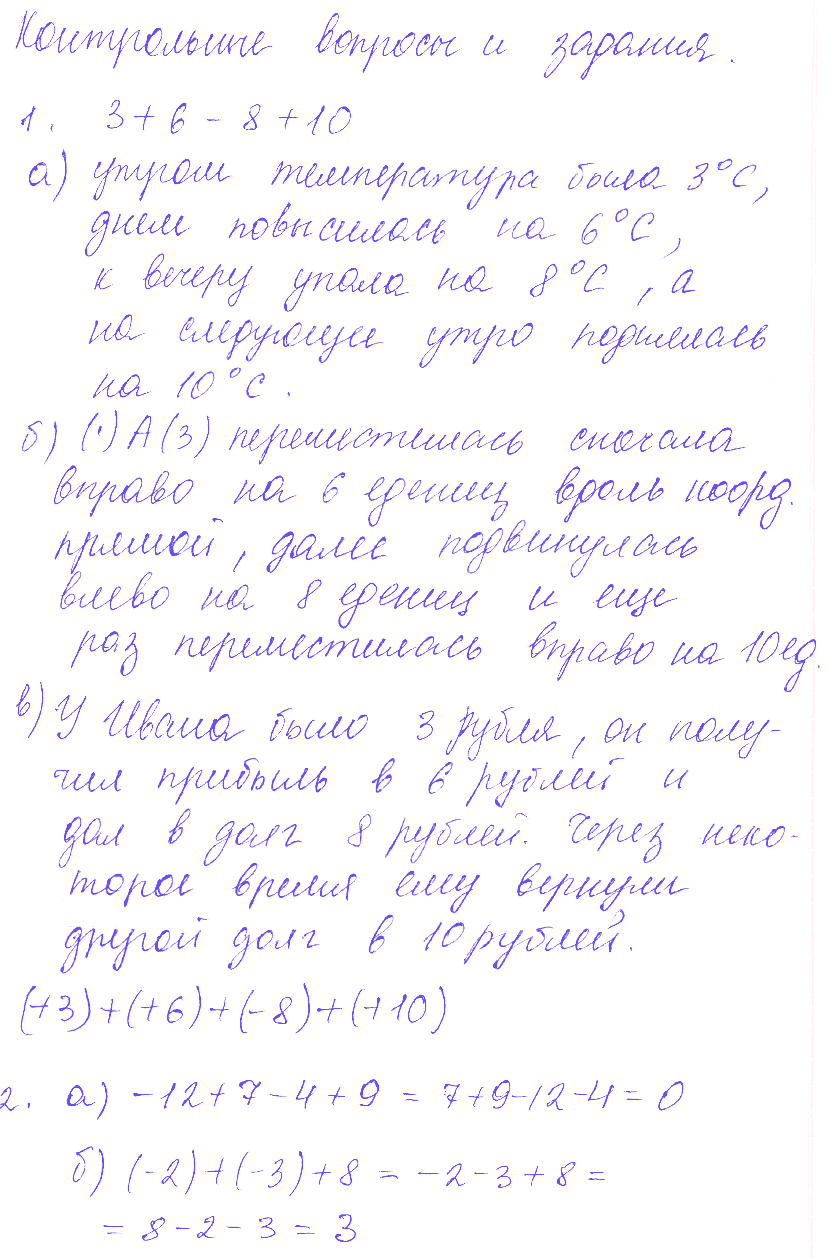 Контрольные вопросы и задания.
1. 3+6-8+10
а) утром температура была 3°С,
днем повысилась на 6°С,
к вечеру упала на 8°С, а
на следующее утро поднялась
на 10°С.
б) (·)А(3) переместилась сначала
вправо на 6 едениц вдоль коорд.
прямой, далее подвинулась
влево на 8 едениц и еще
раз переместилась вправо на 10ед.
в) У Ивана было 3 рубля, он полу-
чил прибыль в 6 рублей и
дал в долг 8 рублей. Через неко-
торое время ему вернули
другой долг в 10 рублей.
(+3)+(+6)+(-8)+(+10)
2. а) -12+7-4+9=7+9-12-4=0
б) (-2)+(-3)+8=-2-3+8=
=8-2-3=3